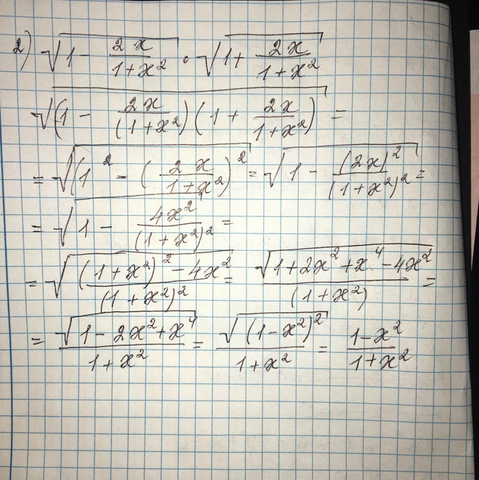 2) √(1 - 2x/(1+x²)) • √(1 + 2x/(1+x²))
√((1 - 2x/(1+x²))(1 + 2x/(1+x²))) =
= √((1² - (2x/(1+x²))²) = √(1 - (2x)²/(1+x²)²) =
= √(1 - 4x²/(1+x²)²) =
= √(((1+x²)² - 4x²)/(1+x²)²) = √(1+2x²+x⁴-4x²)/(1+x²) =
= √(1-2x²+x⁴)/(1+x²) = √((1-x²)²)/(1+x²) = (1-x²)/(1+x²)